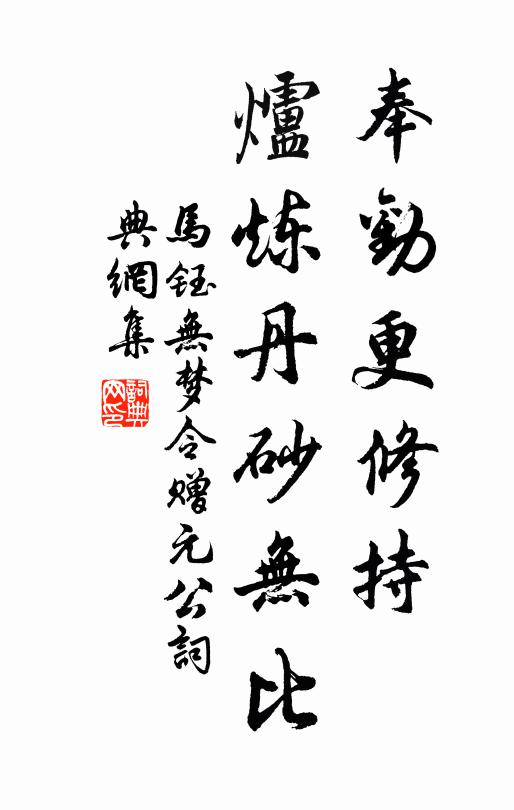 奉勸更修持
爐炼丹砂無比
馬鈺無梦令赠元公詞
典網集
詞典网印